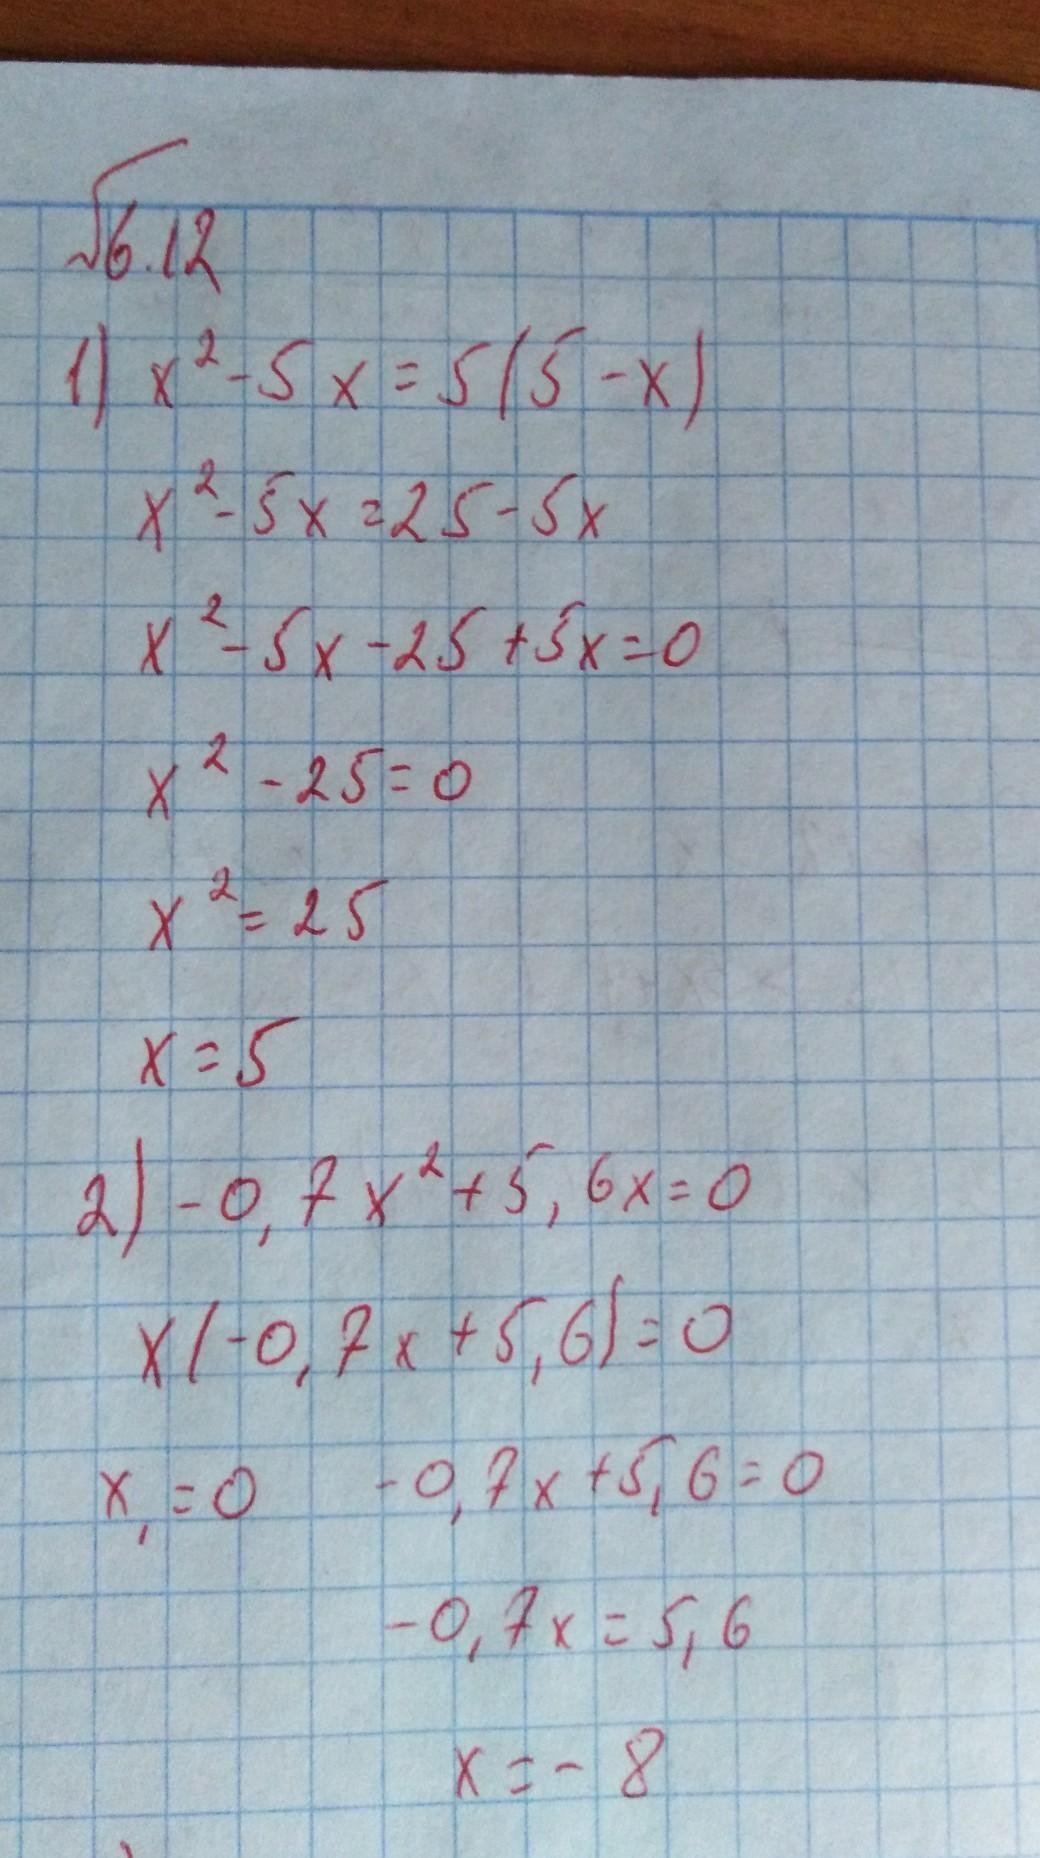 √6.12
1) x² - 5x = 5(5 - x)
x² - 5x = 25 - 5x
x² - 5x - 25 + 5x = 0
x² - 25 = 0
x² = 25
x = 5
2) -0,7x² + 5,6x = 0
x(-0,7x + 5,6) = 0
x₁ = 0 -0,7x + 5,6 = 0
-0,7x = 5,6
x = -8